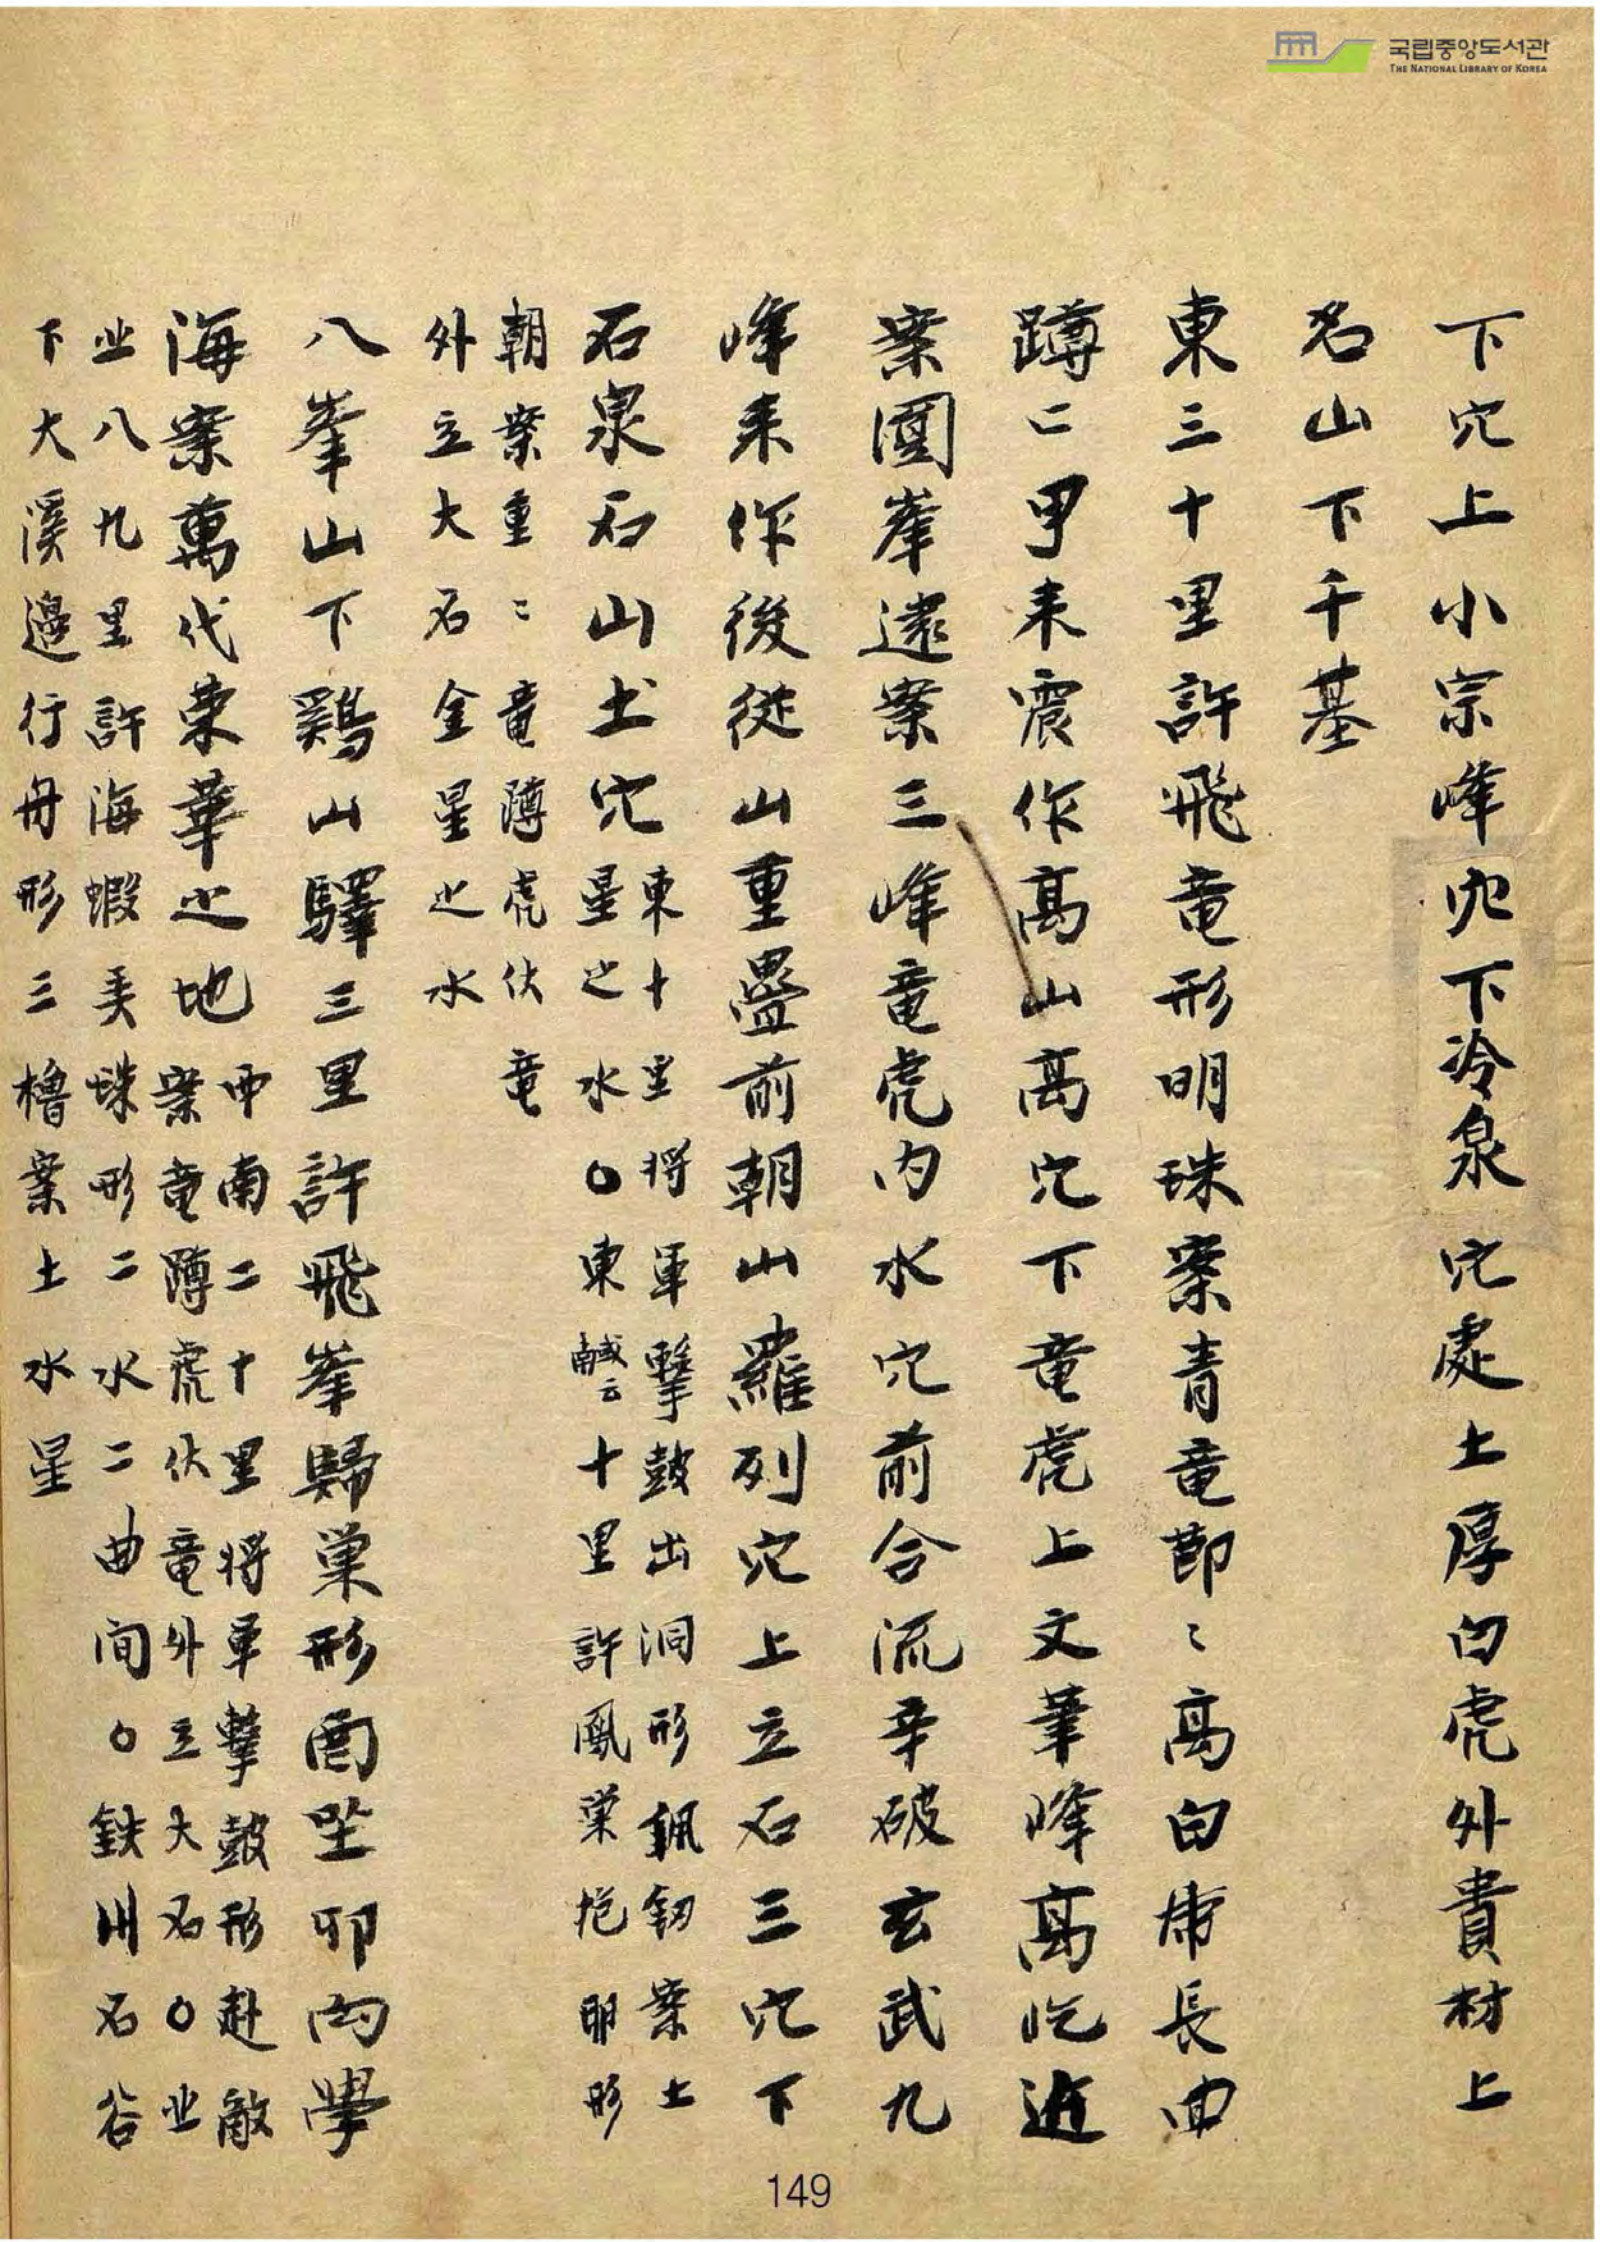 국립중앙도서관
THE NATIONAL LIBRARY OF KOREA
下穴上小宗峰穴下冷泉穴處土厚白虎外貴材上
名山下千基
東三十里許飛竜形明珠案青竜節〻高白虎長回
蹲〻甲来震作高山高穴下竜虎上文筆峰高屹近
案圓峯遠案三峰竜虎内水穴前合流辛破玄武九
峰来作後從山重疊前朝山羅列穴上立石三穴下
石泉石山土穴
東十里将軍擊鼓出洞形佩釰案土
星之水○東鹹南云十里許鳳巣抱卵形
朝案重〻竜蹲虎伏竜
外立大石金星之水
八峯山下鷄山驛三里許飛峯歸巣形酉坐卯向學
海案萬代榮華之地
南二十里将軍擊鼓形赴敵
案竜蹲虎伏竜外立大石○北
北八九里許海蝦弄珠形二水二曲间○鉄川石谷
下大溪邊行舟形三櫓案土水星
149